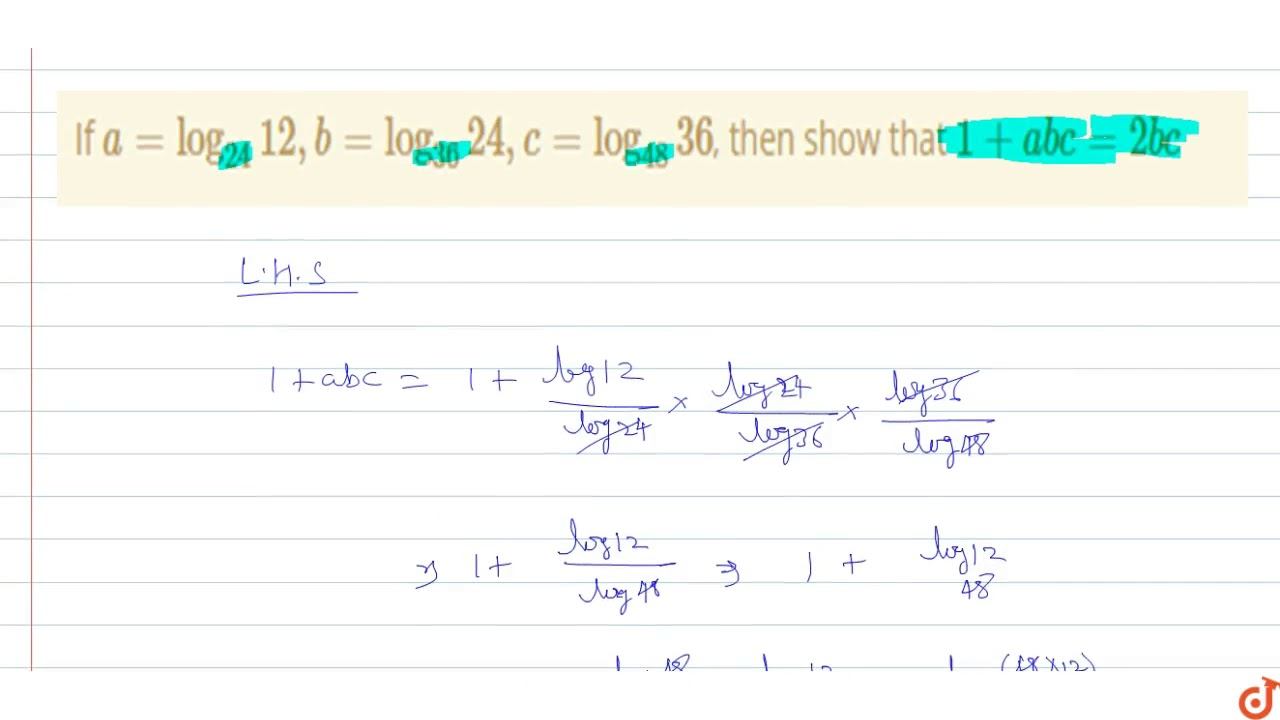 If a = log₂₄ 12, b = log₃₆ 24, c = log₄₈ 36, then show that 1 + abc = 2bc
L.H.S
1 + abc = 1 + log 12 / log 24 × log 24 / log 36 × log 36 / log 48
⇒ 1 + log 12 / log 48 ⇒ 1 + log₄₈ 12
(48×12)